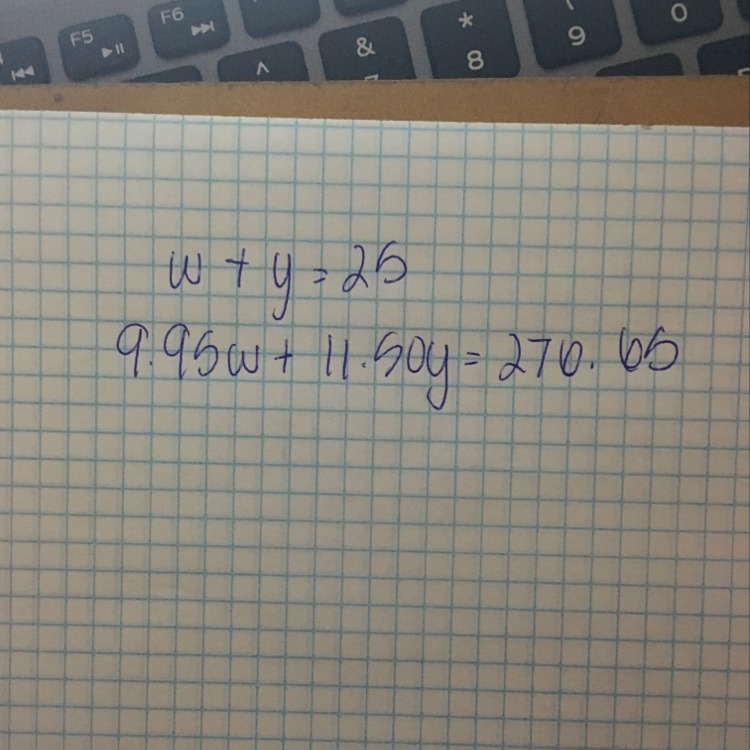 F5 F6
^ & * 8 9 0
w + y = 25
9.95w + 11.50y = 276.65